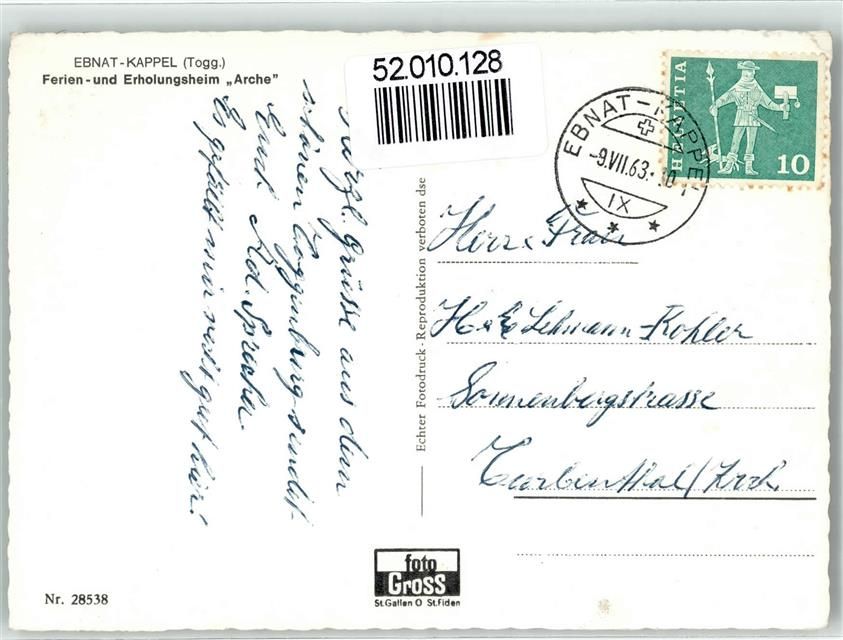 EBNAT-KAPPEL (Togg.)
Ferien-und Erholungsheim „Arche"
52.010.128
EBNAT-KAPPEL
-9.VII.63.-10
IX
HELVETIA
10
Herzl. Grüsse aus dem
schönen Toggenburg sendet
Euch Ad. Sprecher
Es gefällt mir recht gut hier!
Echter Fotodruck - Reproduktion verboten dse
Herr & Frau
H & E Lehmann-Kohler
Sonnenbergstrasse
Turbenthal/Zrch.
foto
Gross
St.Gallen O St.Fiden
Nr. 28538